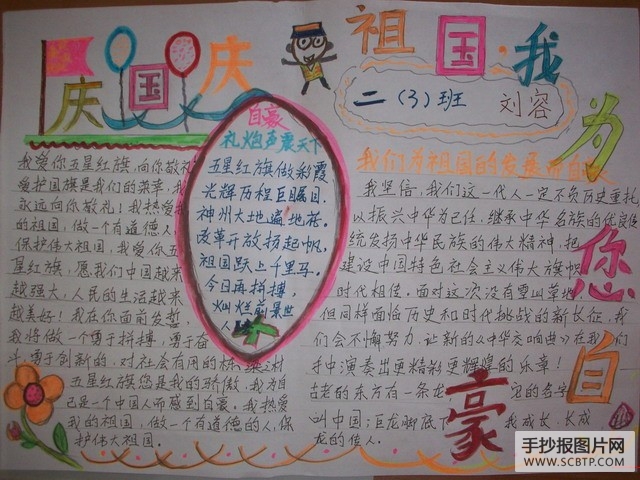 庆国庆
祖国·我为您自豪
二（3）班 刘容
我爱你五星红旗,向你敬礼
爱护国旗是我们的荣幸,我
永远向你敬礼！我热爱我
的祖国,做一个有道德人
保护伟大祖国,我爱你五
星红旗,愿我们中国越来
越强大,人民的生活越来
越美好！我在你面前发誓,
我将做一个勇于拼搏,勇于奋
斗,勇于创新的,对社会有用的栋梁之材
五星红旗您是我的骄傲,我为自
己是一个中国人而感到自豪。我热爱
我的祖国,做一个有道德的人,保
护伟大祖国。
自豪
礼炮声震天下
五星红旗做彩霞
光辉历程巨瞩目.
神州大地遍地花.
改革开放扬起帆,
祖国跃上千里马.
今日再拼搏,
灿烂前景世
我们为祖国的发展而自
我坚信,我们这一代人一定不负历史重托
以振兴中华为己任,继承中华名族的优良
统发扬中华民族的伟大精神,把
建设中国特色社会主义伟大旗帜
时代相传,面对这次没有雪山草地,
但同样面临历史和时代挑战的新长征,我
们会不懈努力,让新的《中华交响曲》在我们
手中演奏出更精彩更辉煌的乐章！
古老的东方有一条龙 的名字
叫中国;巨龙脚底下 我成长,长成
龙的传人.
手抄报图片网
WWW.SCBTP.COM